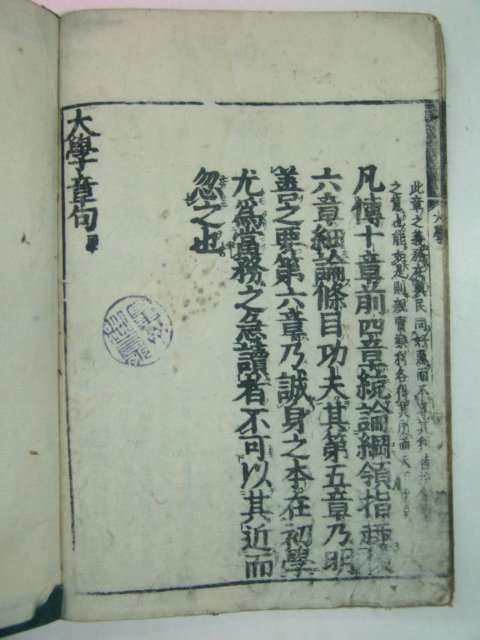 此章之義務在與民同好惡而不專其利皆推
之意也能如是則親賢樂利各得其所而天下
凡傳十章前四章統論綱領指趣後
六章細論條目功夫其第五章乃明
善之要第六章乃誠身之本在初學
尤爲當務之急讀者不可以其近而
忽之也
大學章句
大學